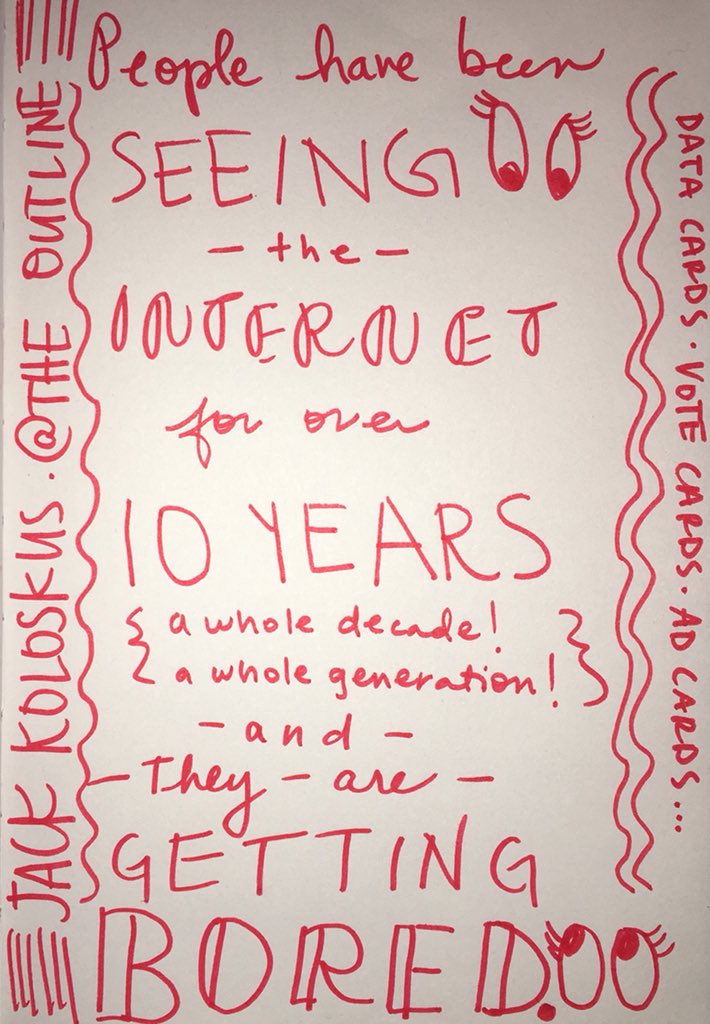 People have been
SEEING
- the -
INTERNET
for over
10 YEARS
{ a whole decade!
a whole generation! }
- and -
- They - are -
GETTING
BORED.
JACK KOLOSKUS. @THE OUTLINE
DATA CARDS. VOTE CARDS. AD CARDS...